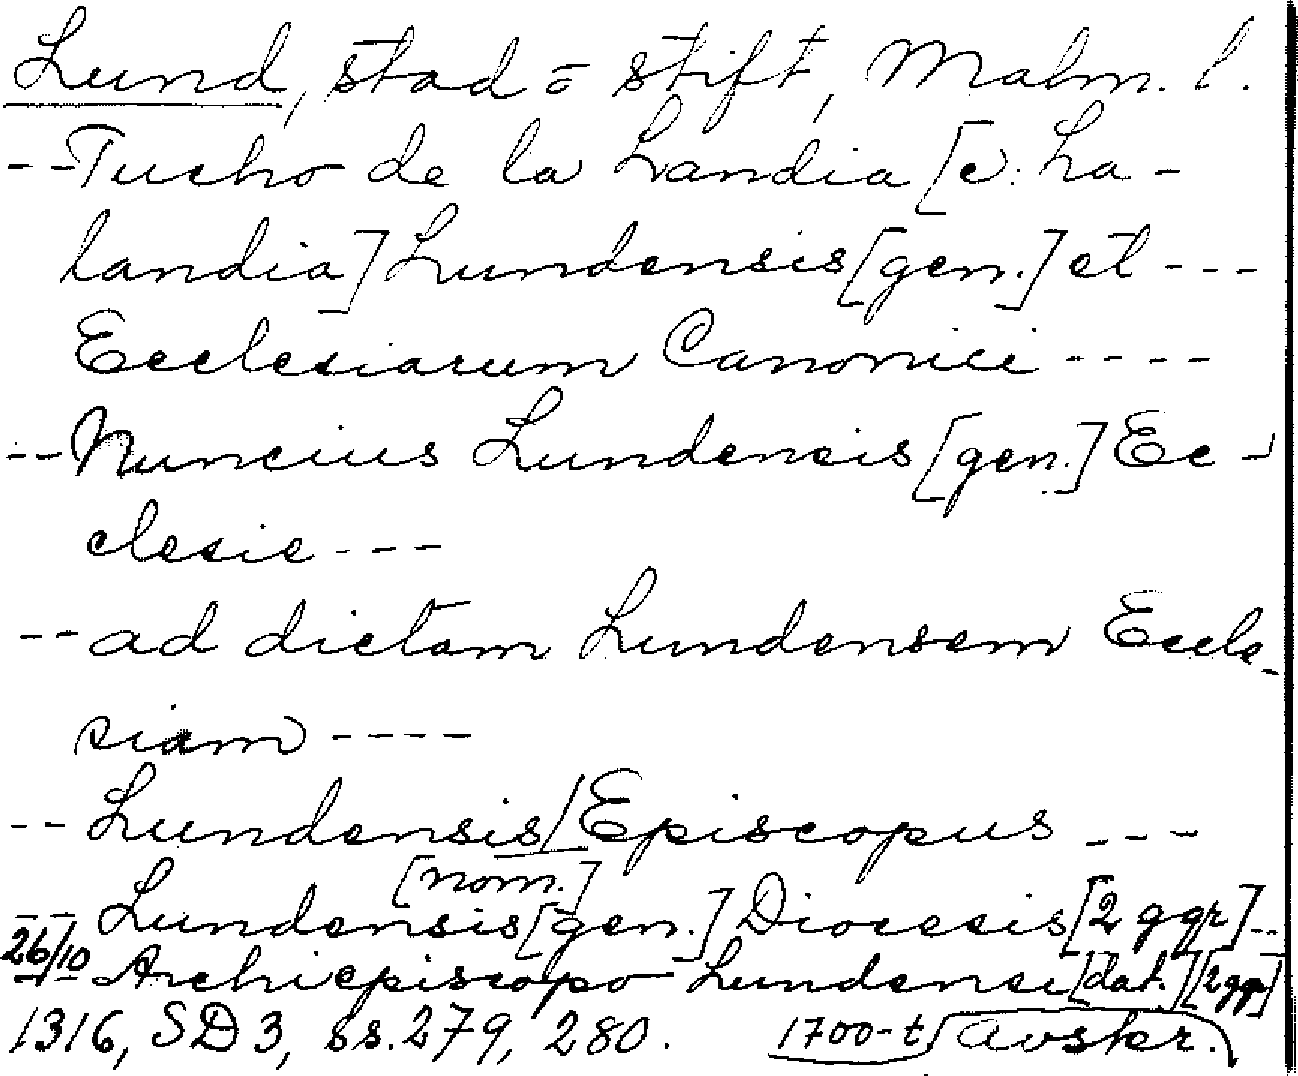 Lund, stad o stift, Malm. l.
-- Tucho de la Landia [c: La-
landia] Lundensis [gen.] et ---
Ecclesiarum Canonici ----
-- Nuncius Lundensis [gen.] Ec-
clesie ---
-- ad dictam Lundensem Eccle-
siam ----
-- Lundensis/Episcopus ---
[nom.]
-- Lundensis [gen.] Diocesis [2 ggr] --
26/10 Archiepiscopo Lundensi [dat.] [2 ggr]
1316, SD 3, ss. 279, 280. 1700-t avskr.